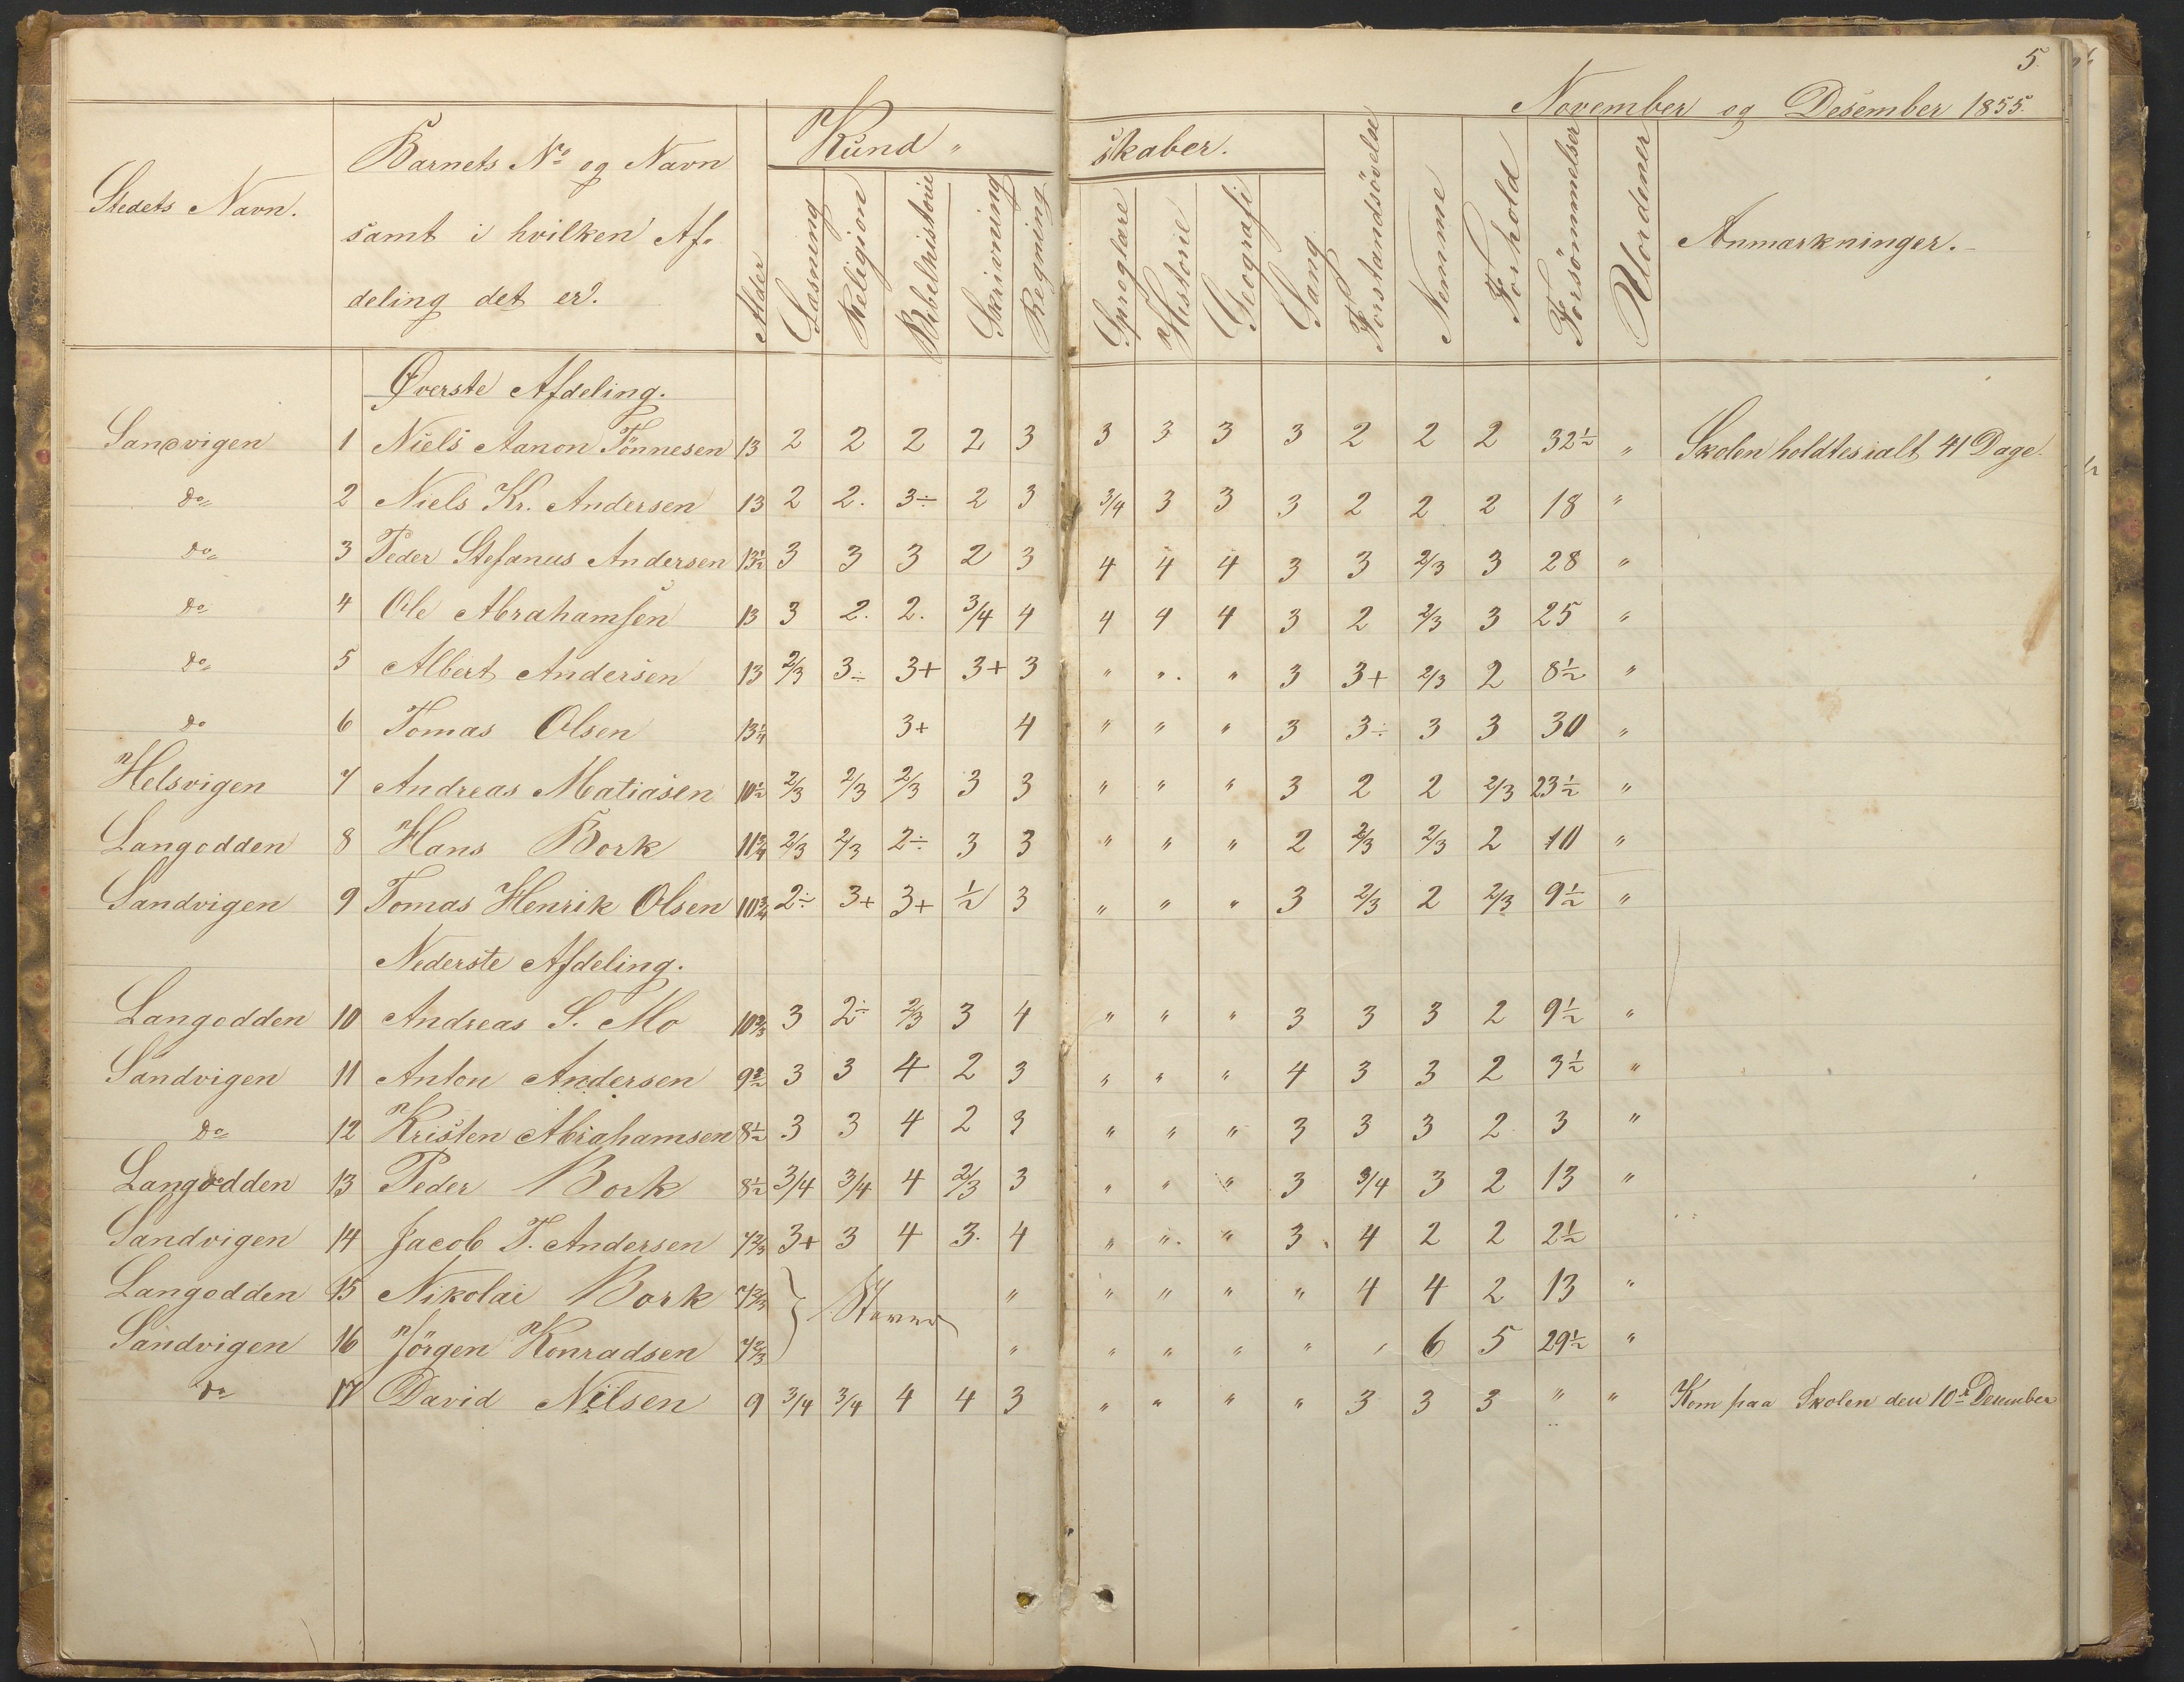 5.
November og Desember 1855.
Stedets Navn.
Barnets No og Navn
samt i hvilken Af-
deling det er.
Alder
Kund-
skaber.
Læsning
Religion
Bibelhistorie
Skrivning
Regning
Sproglære
Historie
Geografi
Sang
Forstandsøvelse
Nemme
Forhold
Forsømmelser
Uordener
Anmærkninger.
Øverste Afdeling.
Sandvigen 1 Niels Aanon Tönnesen 13 2 2 2 2 3 3 3 3 3 2 2 2 32½ " Skolen holdtes ialt 41 Dage.
do 2 Niels Kr. Andersen 13 2 2. 3÷ 2 3 3/4 3 3 3 2 2 2 18 "
do 3 Peder Stefanus Andersen 13½ 3 3 3 2 3 4 4 4 3 3 2/3 3 28 "
do 4 Ole Abrahamsen 13 3 2. 2. 3/4 4 4 4 4 3 2 2/3 3 25 "
do 5 Albert Andersen 13 2/3 3÷ 3+ 3+ 3 " " " 3 3+ 2/3 2 8½ "
do 6 Tomas Olsen 13¼ 3+ 4 " " " 3 3÷ 3 3 30 "
Helsvigen 7 Andreas Matiasen 10½ 2/3 2/3 2/3 3 3 " " " 3 2 2 2/3 23½ "
Langodden 8 Hans Bork 11¾ 2/3 2/3 2÷ 3 3 " " " 2 2/3 2/3 2 10 "
Sandvigen 9 Tomas Henrik Olsen 10¾ 2÷ 3+ 3+ ½ 3 " " " 3 2/3 2 2/3 9½ "
Nederste Afdeling.
Langodden 10 Andreas S. Mo 10⅔ 3 2÷ 2/3 3 4 " " " 3 3 3 2 9½ "
Sandvigen 11 Anton Andersen 9½ 3 3 4 2 3 " " " 4 3 3 2 3½ "
do 12 Kristen Abrahamsen 8½ 3 3 4 2 3 " " " 3 3 3 2 3 "
Langodden 13 Peder Bork 8½ 3/4 3/4 4 2/3 3 " " " 3 3/4 3 2 13 "
Sandvigen 14 Jacob T. Andersen 7⅔ 3+ 3 4 3. 4 " " " 3 4 2 2 2½
Langodden 15 Nikolai Bork 7⅔ } Staver " " " " " 4 4 2 13 "
Sandvigen 16 Jörgen Konradsen 7⅔ " " " " " " 6 5 29½ "
do 17 David Nilsen 9 3/4 3/4 4 4 3 " " " " 3 3 3 " " Kom paa Skolen den 10de Desember